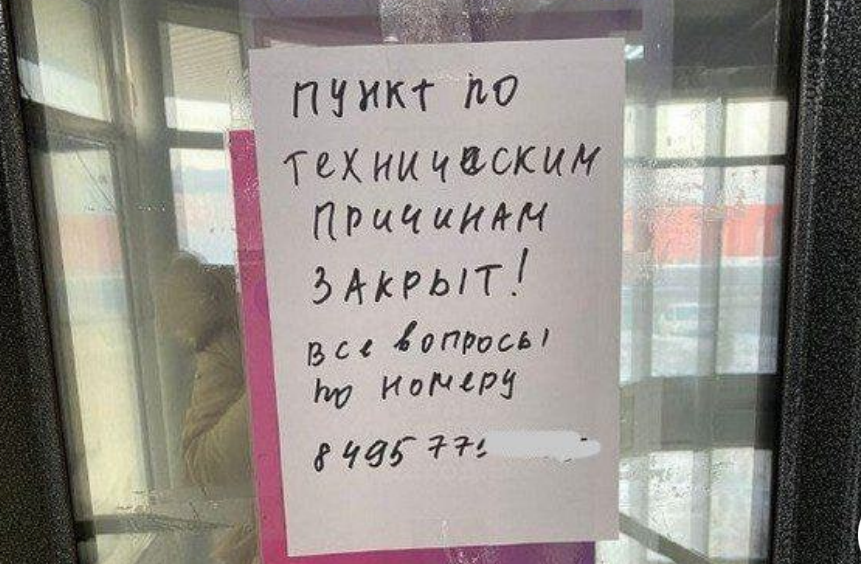 ПУНКТ ПО
ТЕХНИЧЕСКИМ
ПРИЧИНАМ
ЗАКРЫТ!
Все вопросы
по номеру
8495 77